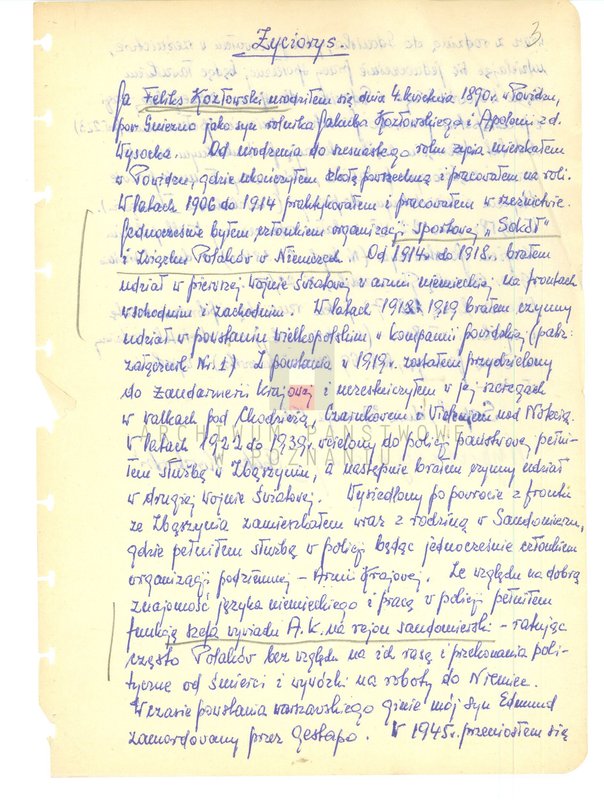 3
Życiorys.
Ja Feliks Kozłowski urodziłem się dnia 4. kwietnia 1890 r. w Powidzu,
pow. Gniezno jako syn rolnika Jakuba Kozłowskiego i Apolonii z d.
Wysocka. Od urodzenia do szesnastego roku życia mieszkałem
w Powidzu, gdzie ukończyłem szkołę powszechną i pracowałem na roli.
W latach 1906 do 1914 praktykowałem i pracowałem w rzeźnictwie.
Jednocześnie byłem członkiem organizacji sportowej „Sokół"
i Związku Polaków w Niemczech. Od 1914 r. do 1918 r. brałem
udział w pierwszej wojnie światowej w armii niemieckiej na frontach
wschodnim i zachodnim. W latach 1918/1919 brałem czynny
udział w powstaniu wielkopolskim w kompanii powidzkiej (patrz:
załącznik Nr. 1) Z powstania w 1919 r. zostałem przydzielony
do Żandarmerii Krajowej i uczestniczyłem w jej szeregach
w walkach pod Chodzieżą, Czarnkowem i Wieleniem nad Notecią.
W latach 1922 do 1939 r. wcielony do policji państwowej, pełni-
łem służbę w Zbąszyniu, a następnie brałem czynny udział
w drugiej wojnie światowej. Wysiedlony po powrocie z frontu
ze Zbąszynia zamieszkałem wraz z rodziną w Sandomierzu,
gdzie pełniłem służbę w policji będąc jednocześnie członkiem
organizacji podziemnej - Armii Krajowej. Ze względu na dobrą
znajomość języka niemieckiego i pracę w policji pełniłem
funkcję szefa wywiadu A.K. na rejon sandomierski - ratując
często Polaków bez względu na ich rasę i przekonania poli-
tyczne od śmierci i wywózki na roboty do Niemiec.
W czasie powstania warszawskiego ginie mój syn Edmund
zamordowany przez gestapo. W 1945 r. przeniosłem się
ARCHIWUM PAŃSTWOWE
W POZNANIU